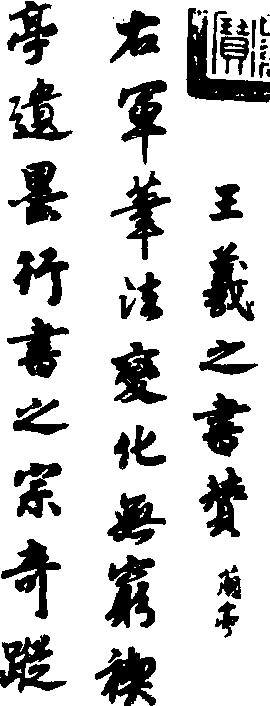 王羲之書贊 蘭亭
右軍筆法變化無窮禊
亭遺墨行書之宗奇蹤